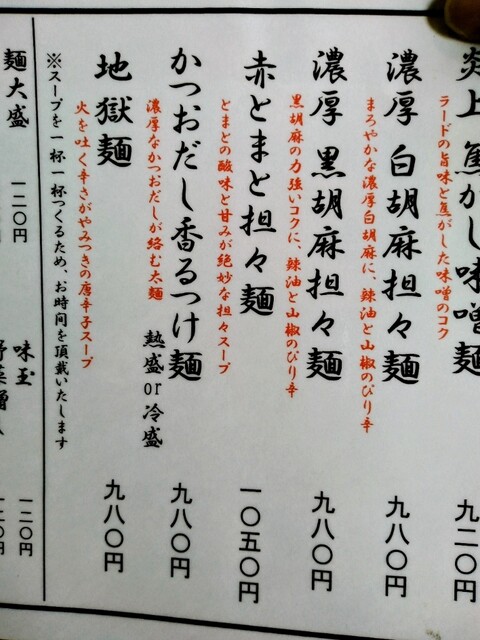 炎上 焦がし味噌麺
ラードの旨味と焦がした味噌のコク
九二〇円
濃厚 白胡麻担々麺
まろやかな濃厚白胡麻に、辣油と山椒のぴり辛
九八〇円
濃厚 黒胡麻担々麺
黒胡麻の力強いコクに、辣油と山椒のぴり辛
九八〇円
赤とまと担々麺
とまとの酸味と甘みが絶妙な担々スープ
一〇五〇円
かつおだし香るつけ麺
濃厚なかつおだしが絡む太麺
熱盛or冷盛
九八〇円
地獄麺
火を吐く辛さがやみつきの唐辛子スープ
九八〇円
※スープを一杯一杯つくるため、お時間を頂戴いたします
麺大盛 一二〇円
味玉 一二〇円
野菜増し